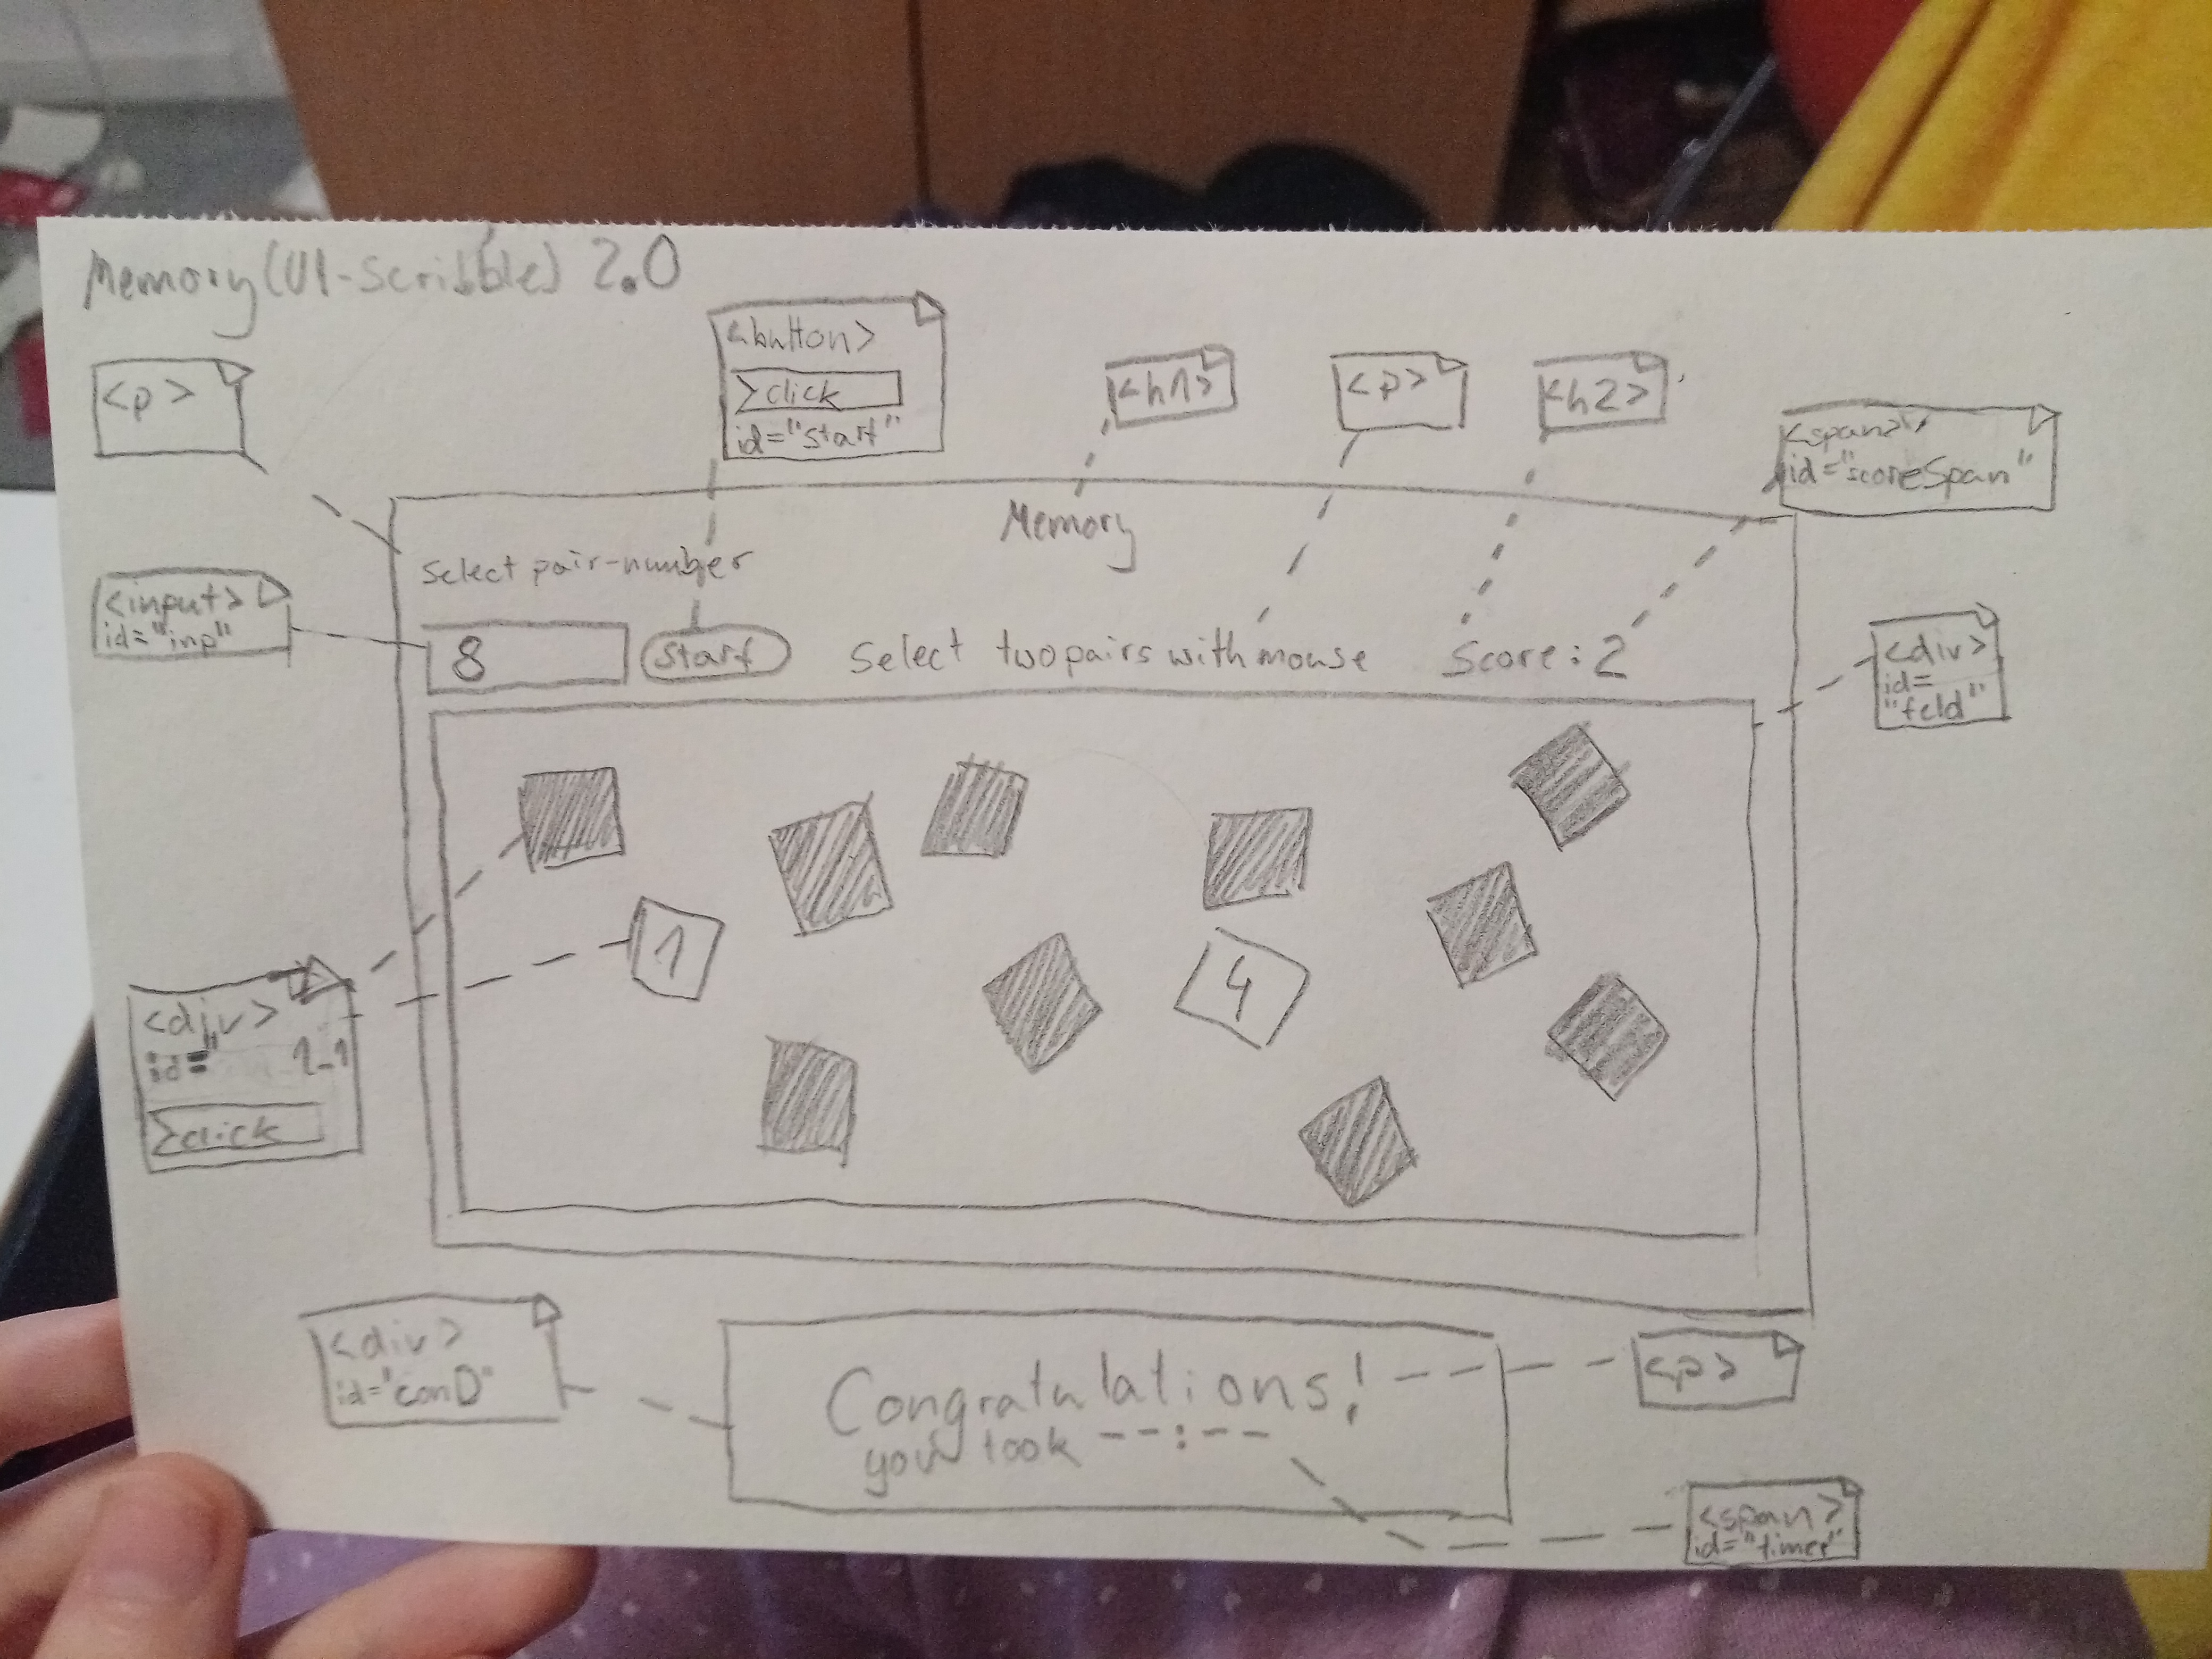 Memory (UI-Scribble) 2.0
<p>
<button>
click
id="start"
<h1>
<p>
<h2>
<span>
id="scoreSpan"
Memory
Select pair-number
<input>
id="inp"
8
Start
Select two pairs with mouse
Score: 2
<div>
id=
"feld"
1
4
<div>
id="1_1
click
<div>
id="conD"
Congratulations!
you took --:--
<p>
<span>
id="timer"